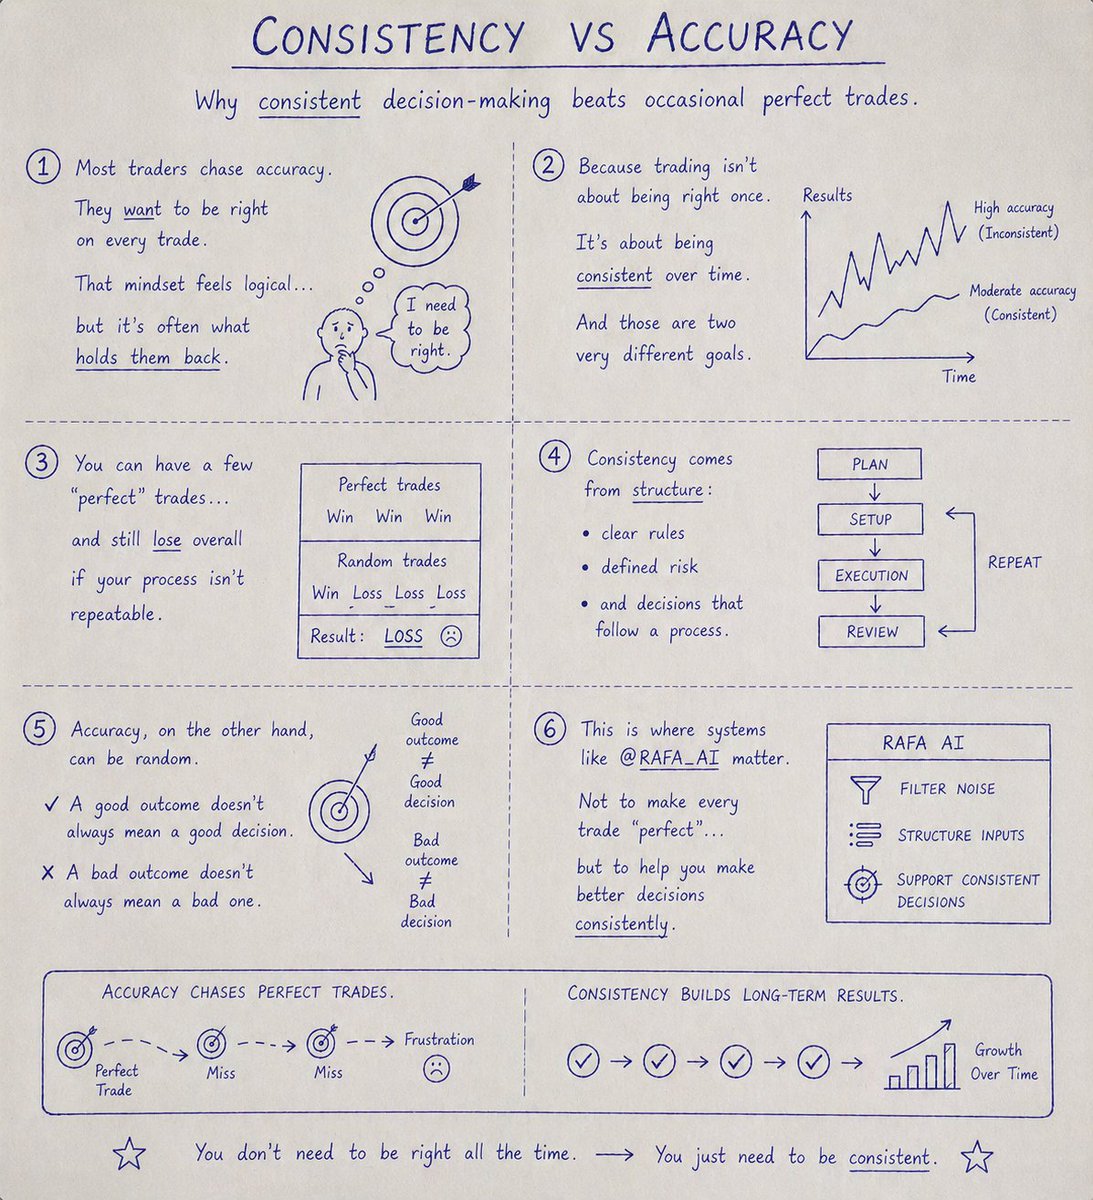 CONSISTENCY VS ACCURACY
Why consistent decision-making beats occasional perfect trades.
1 Most traders chase accuracy.
They want to be right
on every trade.
That mindset feels logical...
but it's often what
holds them back.
I need
to be
right.
2 Because trading isn't
about being right once.
It's about being
consistent over time.
And those are two
very different goals.
Results
High accuracy
(Inconsistent)
Moderate accuracy
(Consistent)
Time
3 You can have a few
"perfect" trades...
and still lose overall
if your process isn't
repeatable.
Perfect trades
Win Win Win
Random trades
Win Loss Loss Loss
Result: LOSS
4 Consistency comes
from structure:
• clear rules
• defined risk
• and decisions that
follow a process.
PLAN
SETUP
EXECUTION
REVIEW
REPEAT
5 Accuracy, on the other hand,
can be random.
✓ A good outcome doesn't
always mean a good decision.
X A bad outcome doesn't
always mean a bad one.
Good
outcome
≠
Good
decision
Bad
outcome
≠
Bad
decision
6 This is where systems
like @RAFA_AI matter.
Not to make every
trade "perfect"...
but to help you make
better decisions
consistently.
RAFA AI
FILTER NOISE
STRUCTURE INPUTS
SUPPORT CONSISTENT
DECISIONS
ACCURACY CHASES PERFECT TRADES.
Perfect
Trade
Miss
Miss
Frustration
CONSISTENCY BUILDS LONG-TERM RESULTS.
Growth
Over Time
You don't need to be right all the time. → You just need to be consistent.